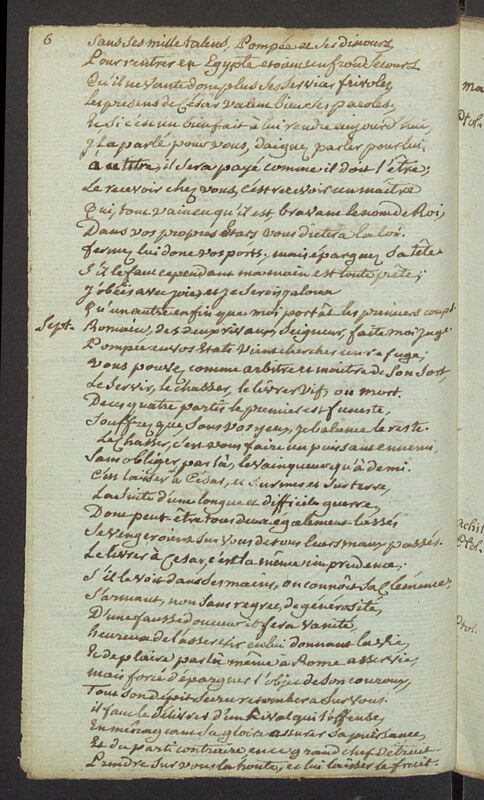 6
Sans ses mille talens, Pompée et ses discours
Pour rentrer en Egypte etoient un froid secours
Qu'il ne vante donc plus ses services frivoles,
Les présens de César valent bien ses paroles,
Et si c'est un bienfait à lui rendre aujourd'hui,
il a parlé pour vous, daignez parler pour lui.
à ce titre, il sera payé comme il doit l'être;
Le recevoir chez vous, c'est recevoir un maître
Qui, tout vaincu qu'il est, bravant le nom de Roi,
Dans vos propres Etats vous dictera la loi.
fermez lui donc vos ports, mais épargnez sa tête
S'il le faut cependant ma main est toute prête;
J'obéis avec joie, et je serois jaloux
Qu'un autre enfin que moi portât les premiers coups.
Sept. Romain, des deux privaux, Seigneur, faites moi juge
Pompée en vos Etats vient chercher un refuge,
Vous pouvez, comme arbitre et maitre de son sort,
Le servir, le chasser, le livrer vif, ou mort.
De ces quatre partis le premier est funeste,
Souffrez que sous vos yeux, je balance le reste.
Le chasser, c'est vous faire un puissant ennemi,
Sans obliger par là, le vainqueur qu'à demi.
C'est laisser à César, et sur mer et sur terre,
La suite d'une longue et difficile guerre,
Dont peut être tous deux également lassés
Se vengeroient sur vous de tous leurs maux passés.
Le livrer à César, c'est la même imprudence;
S'il le voit dans ses mains, on connoît sa clémence,
S'armant, non sans regret, de générosité,
D'une fausse douceur il fera vanité,
heureux de l'asservir en lui donnant la vie,
Et de plaire par là même à Rome asservie,
mais forcé d'épargner l'objet de son couroux,
Tout son dépit secret retombera sur vous.
il faut le délivrer d'un Rival qui l'offense,
En ménageant sa gloire assurer sa puissance,
Et du parti contraire en ce grand chef détruit
Prendre sur vous la honte, et lui laisser le fruit.